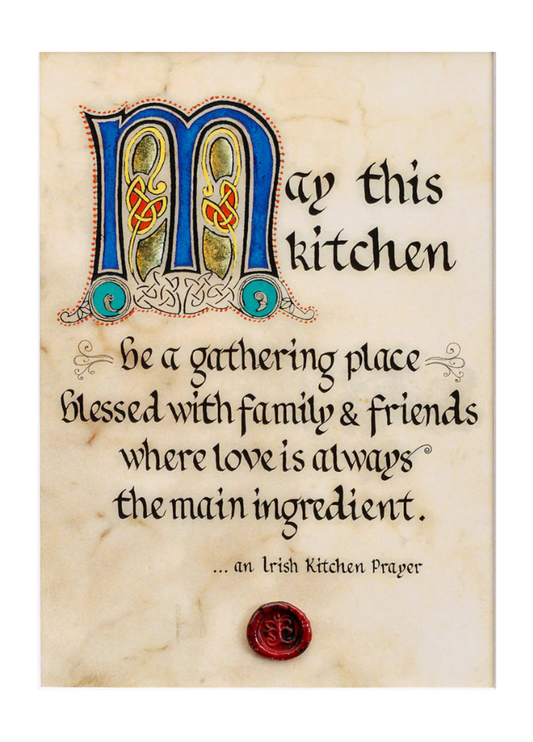 May this
kitchen
be a gathering place
blessed with family & friends
where love is always
the main ingredient.
... an Irish Kitchen Prayer